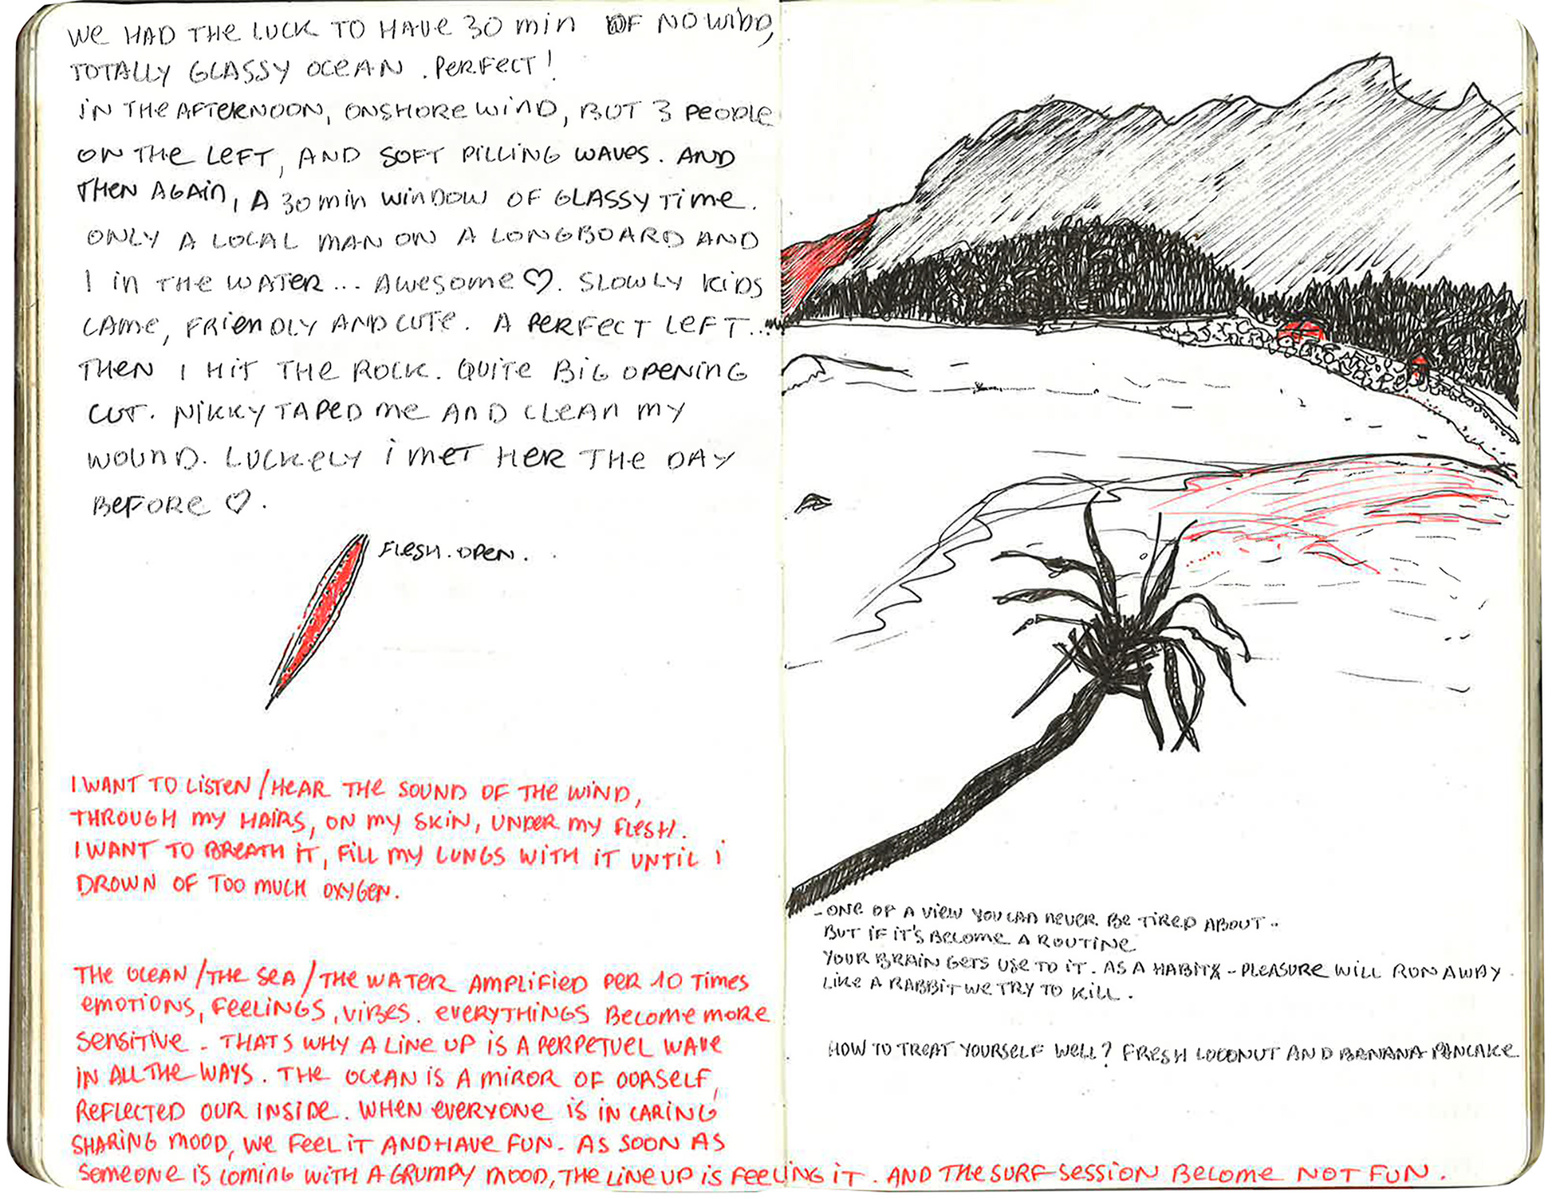 WE HAD THE LUCK TO HAVE 30 min OF NO WIND,
TOTALLY GLASSY OCEAN . PERFECT !
IN THE AFTERNOON, ONSHORE WIND, BUT 3 PEOPLE
ON THE LEFT, AND SOFT PILLING WAVES. AND
THEN AGAIN, A 30 min WINDOW OF GLASSY TIME.
ONLY A LOCAL MAN ON A LONGBOARD AND
I IN THE WATER... AWESOME ♡. SLOWLY KIDS
CAME, FRIENDLY AND CUTE. A PERFECT LEFT...
THEN I HIT THE ROCK. QUITE BIG OPENING
CUT. NIKKY TAPED ME AND CLEAN MY
WOUND. LUCKELY I MET HER THE DAY
BEFORE ♡.
FLESH. OPEN.
I WANT TO LISTEN / HEAR THE SOUND OF THE WIND,
THROUGH MY HAIRS, ON MY SKIN, UNDER MY FLESH.
I WANT TO BREATH IT, FILL MY LUNGS WITH IT UNTIL I
DROWN OF TOO MUCH OXYGEN.
THE OCEAN / THE SEA / THE WATER AMPLIFIED PER 10 TIMES
EMOTIONS, FEELINGS, VIBES. EVERYTHINGS BECOME MORE
SENSITIVE - THATS WHY A LINE UP IS A PERPETUEL WAVE
IN ALL THE WAYS. THE OCEAN IS A MIROR OF OORSELF,
REFLECTED OUR INSIDE. WHEN EVERYONE IS IN CARING
SHARING MOOD, WE FEEL IT AND HAVE FUN. AS SOON AS
SOMEONE IS COMING WITH A GRUMPY MOOD, THE LINE UP IS FEELING IT. AND THE SURF SESSION BECOME NOT FUN.
- ONE OF A VIEW YOU CAN NEVER BE TIRED ABOUT..
BUT IF IT'S BECOME A ROUTINE
YOUR BRAIN GETS USE TO IT. AS A HABIT - PLEASURE WILL RUN AWAY
LIKE A RABBIT WE TRY TO KILL.
HOW TO TREAT YOURSELF WELL? FRESH COCONUT AND BANANA PANCAKE